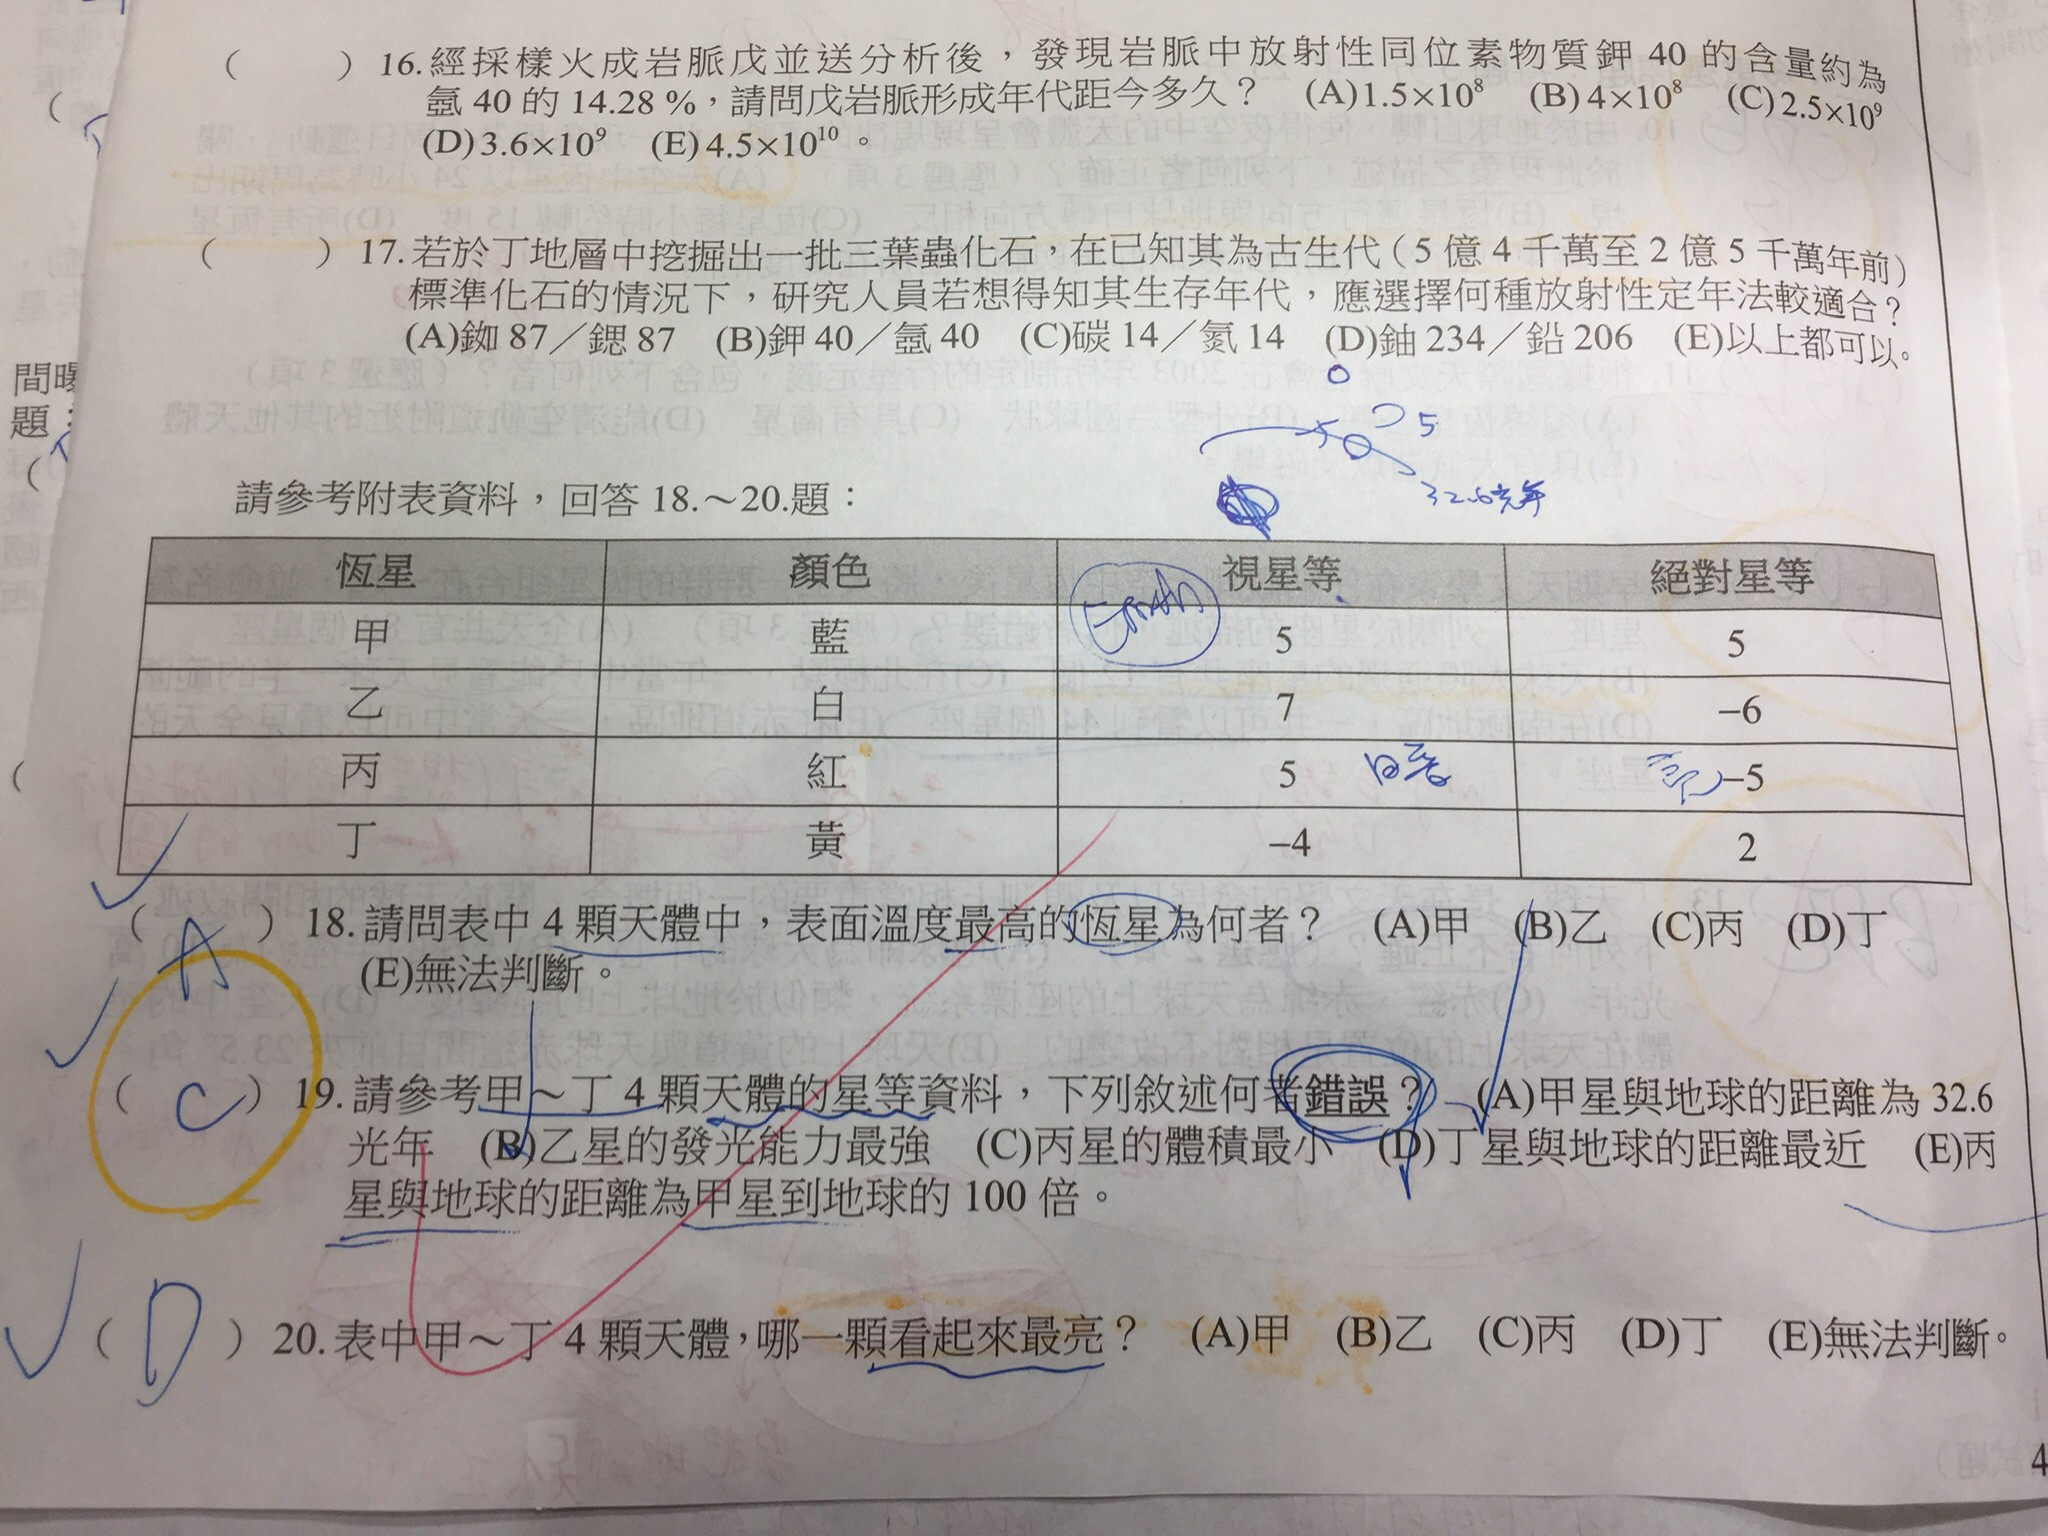 ( ) 16.經採樣火成岩脈戊並送分析後，發現岩脈中放射性同位素物質鉀 40 的含量約為
氬 40 的 14.28 %，請問戊岩脈形成年代距今多久？ (A)1.5×10⁸ (B) 4×10⁸ (C) 2.5×10⁹
(D) 3.6×10⁹ (E) 4.5×10¹⁰。
( ) 17.若於丁地層中挖掘出一批三葉蟲化石，在已知其為古生代（5 億 4 千萬至 2 億 5 千萬年前）
標準化石的情況下，研究人員若想得知其生存年代，應選擇何種放射性定年法較適合？
(A)銣 87／鍶 87 (B)鉀 40／氬 40 (C)碳 14／氮 14 (D)鈾 234／鉛 206 (E)以上都可以。
5
32.6光年
間
題：
請參考附表資料，回答 18.～20.題：
恆星 顏色 視星等 絕對星等
甲 藍 5 5
乙 白 7 −6
丙 紅 5 暗 亮 −5
丁 黃 −4 2
( A ) 18.請問表中 4 顆天體中，表面溫度最高的恆星為何者？ (A)甲 (B)乙 (C)丙 (D)丁
(E)無法判斷。
( C ) 19.請參考甲～丁 4 顆天體的星等資料，下列敘述何者錯誤？ (A)甲星與地球的距離為 32.6
光年 (B)乙星的發光能力最強 (C)丙星的體積最小 (D)丁星與地球的距離最近 (E)丙
星與地球的距離為甲星到地球的 100 倍。
( D ) 20.表中甲～丁 4 顆天體，哪一顆看起來最亮？ (A)甲 (B)乙 (C)丙 (D)丁 (E)無法判斷。
4